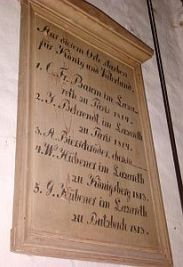 Aus diesem Orte starben
für König und Vaterland.
1. C. Fr. Baum im Laza-
reth zu Paris 1814.
2. F. Behrendt im Lazareth
zu Paris 1814.
3. A.
4. W. Hübener im Lazareth
zu Königsberg 1813.
5. G. Hübener im Lazareth
zu Butzbach 1813.